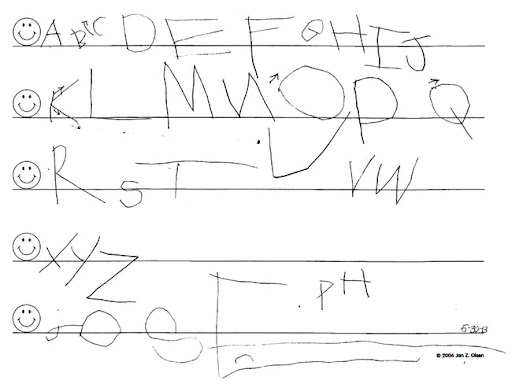 A B C D E F G H I J
K L M N O P Q
R S T U V W
X Y Z
P H
5-30-13
© 2006 Jan Z. Olsen